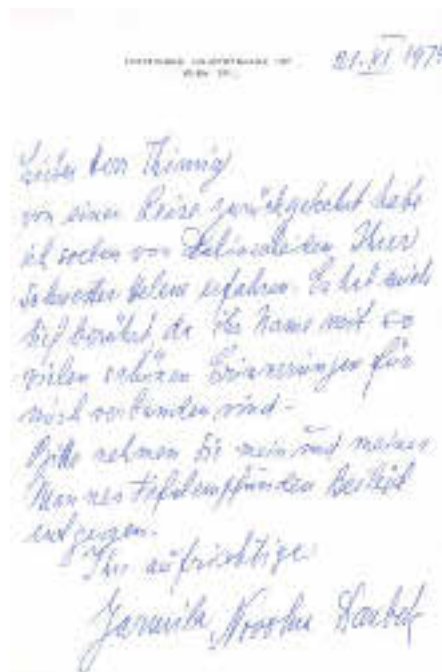 21. XI 1974
Lieber Herr Thimig
von einer Reise zurückgekehrt habe
ich soeben von Dahinscheiden Ihrer
Schwester Helene erfahren. Es hat mich
tief berührt, da ihr Name mit so
vielen schönen Erinnerungen für
mich verbunden sind -
Bitte nehmen Sie mein und meines
Mannes tiefstempfunden Beileid
entgegen.
Ihre aufrichtige
Jarmila Novotna Daubek